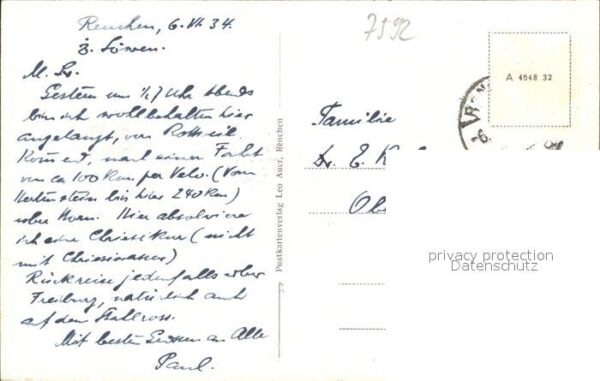 Renchen, 6. VII 34.
z. Löwen.
M. Lr.
Gestern um ½7 Uhr abends
bin ich wohlbehalten hier
angelangt, von Rottweil
kommend, nach einer Fahrt
von ca 100 Km per Velo. (Vom
Hertenstein bis hier 240 Km)
über Horn. Hier absolviere
ich eine Chriesikur (nicht
mit Chriesiwasser)
Rückreise jedenfalls über
Freiburg, natürlich auch
auf dem Stahlross.
Mit besten Grüssen an Alle
Paul.
Postkartenverlag Leo Auer, Renchen
7592
A 4648 32
Familie
Dr. E. K
Ob
privacy protection
Datenschutz